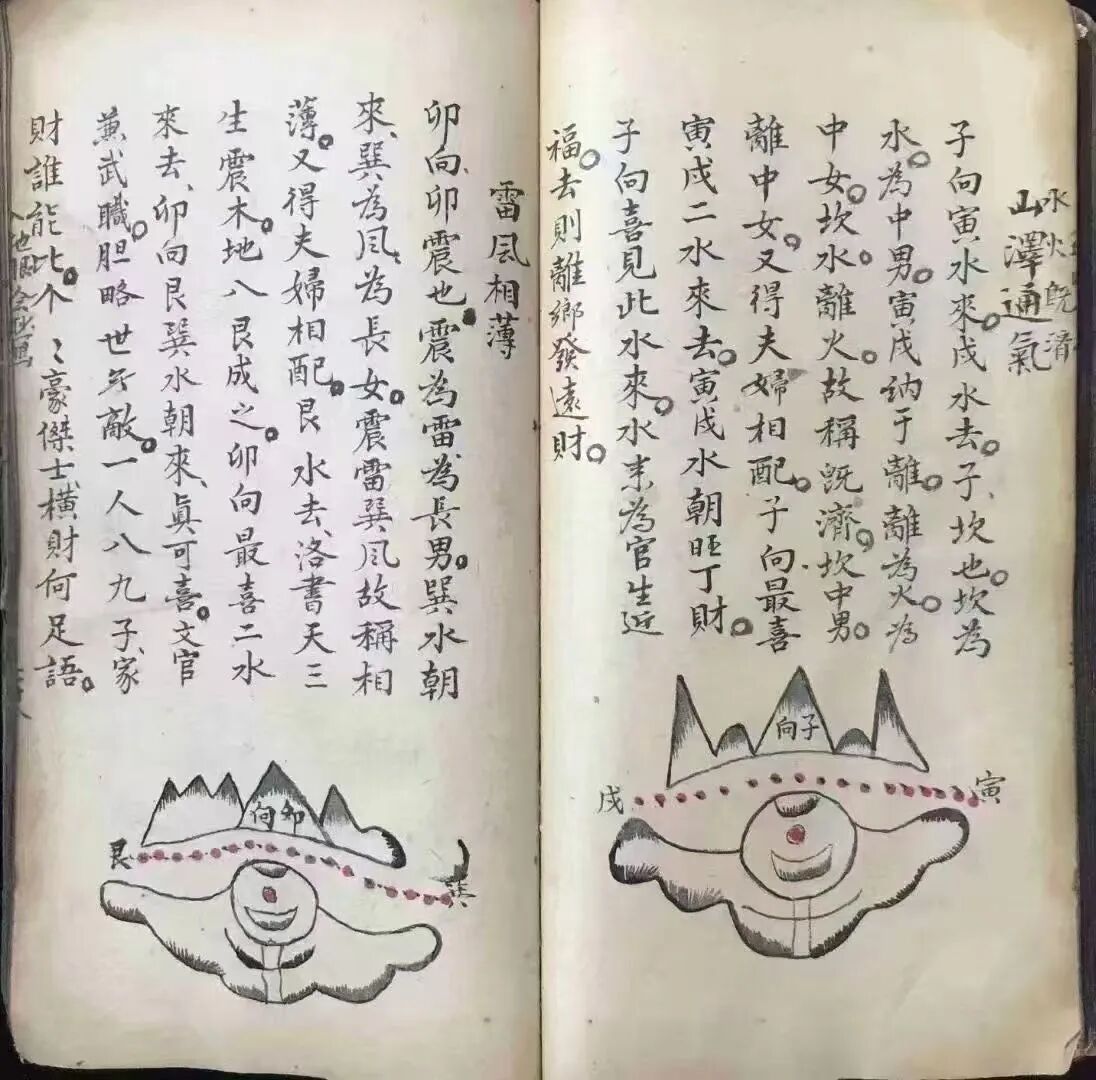 水火既濟
山澤通氣
子向寅水來。戌水去。子、坎也。坎為
水。為中男。寅戌納于離。離為火。為
中女。坎水。離火。故稱既濟。坎中男。
離中女。又得夫婦相配。子向最喜
寅戌二水來去。寅戌水朝旺丁財。
子向喜見此水來。水来為官生近
福。去則離鄉發遠財。
子向
戌
寅
雷風相薄
卯向、卯震也。震為雷。為長男。巽水朝
來、巽為風、為長女。震雷巽風故稱相
薄。又得夫婦相配。艮水去、洛書天三
生震木。地八艮成之。卯向最喜二水
來去、卯向艮巽水朝來、眞可喜。文官
蕪武職。胆略世无敵。一人八九子、家
財誰能比。个〻豪傑士、橫財何足語。
卯向
艮
巽